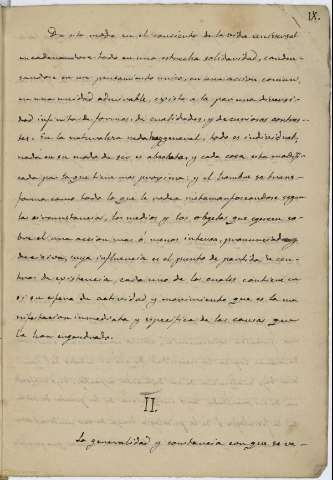 IX.
De este modo en el concierto de la vida universal
encadenandose todo en una estrecha solidaridad, conden-
sandose en un pensamiento unico, en una accion comun,
en una unidad admirable, existe a la par una diversi-
dad infinita de formas, de cualidades, y de curiosos contras-
tes. En la naturaleza nada hay general, todo es individual;
nada en su modo de ser es absoluto, y cada cosa esta modifi-
cada por la que tiene mas proxima; y el hombre se trans-
forma como todo lo que le rodea metamorfoseandose segun
las circunstancias, los medios y los objetos que ejercen so-
bre el una accion mas ó menos intensa, pronunciada y
decisiva, cuya influencia es el punto de partida de cen-
tros de existencia, cada uno de los cuales contiene en
si su esfera de actividad y movimiento que es la ma-
nifestacion inmediata y especifica de las causas que
la han engendrado.
II.
La generalidad y constancia con que se ve-